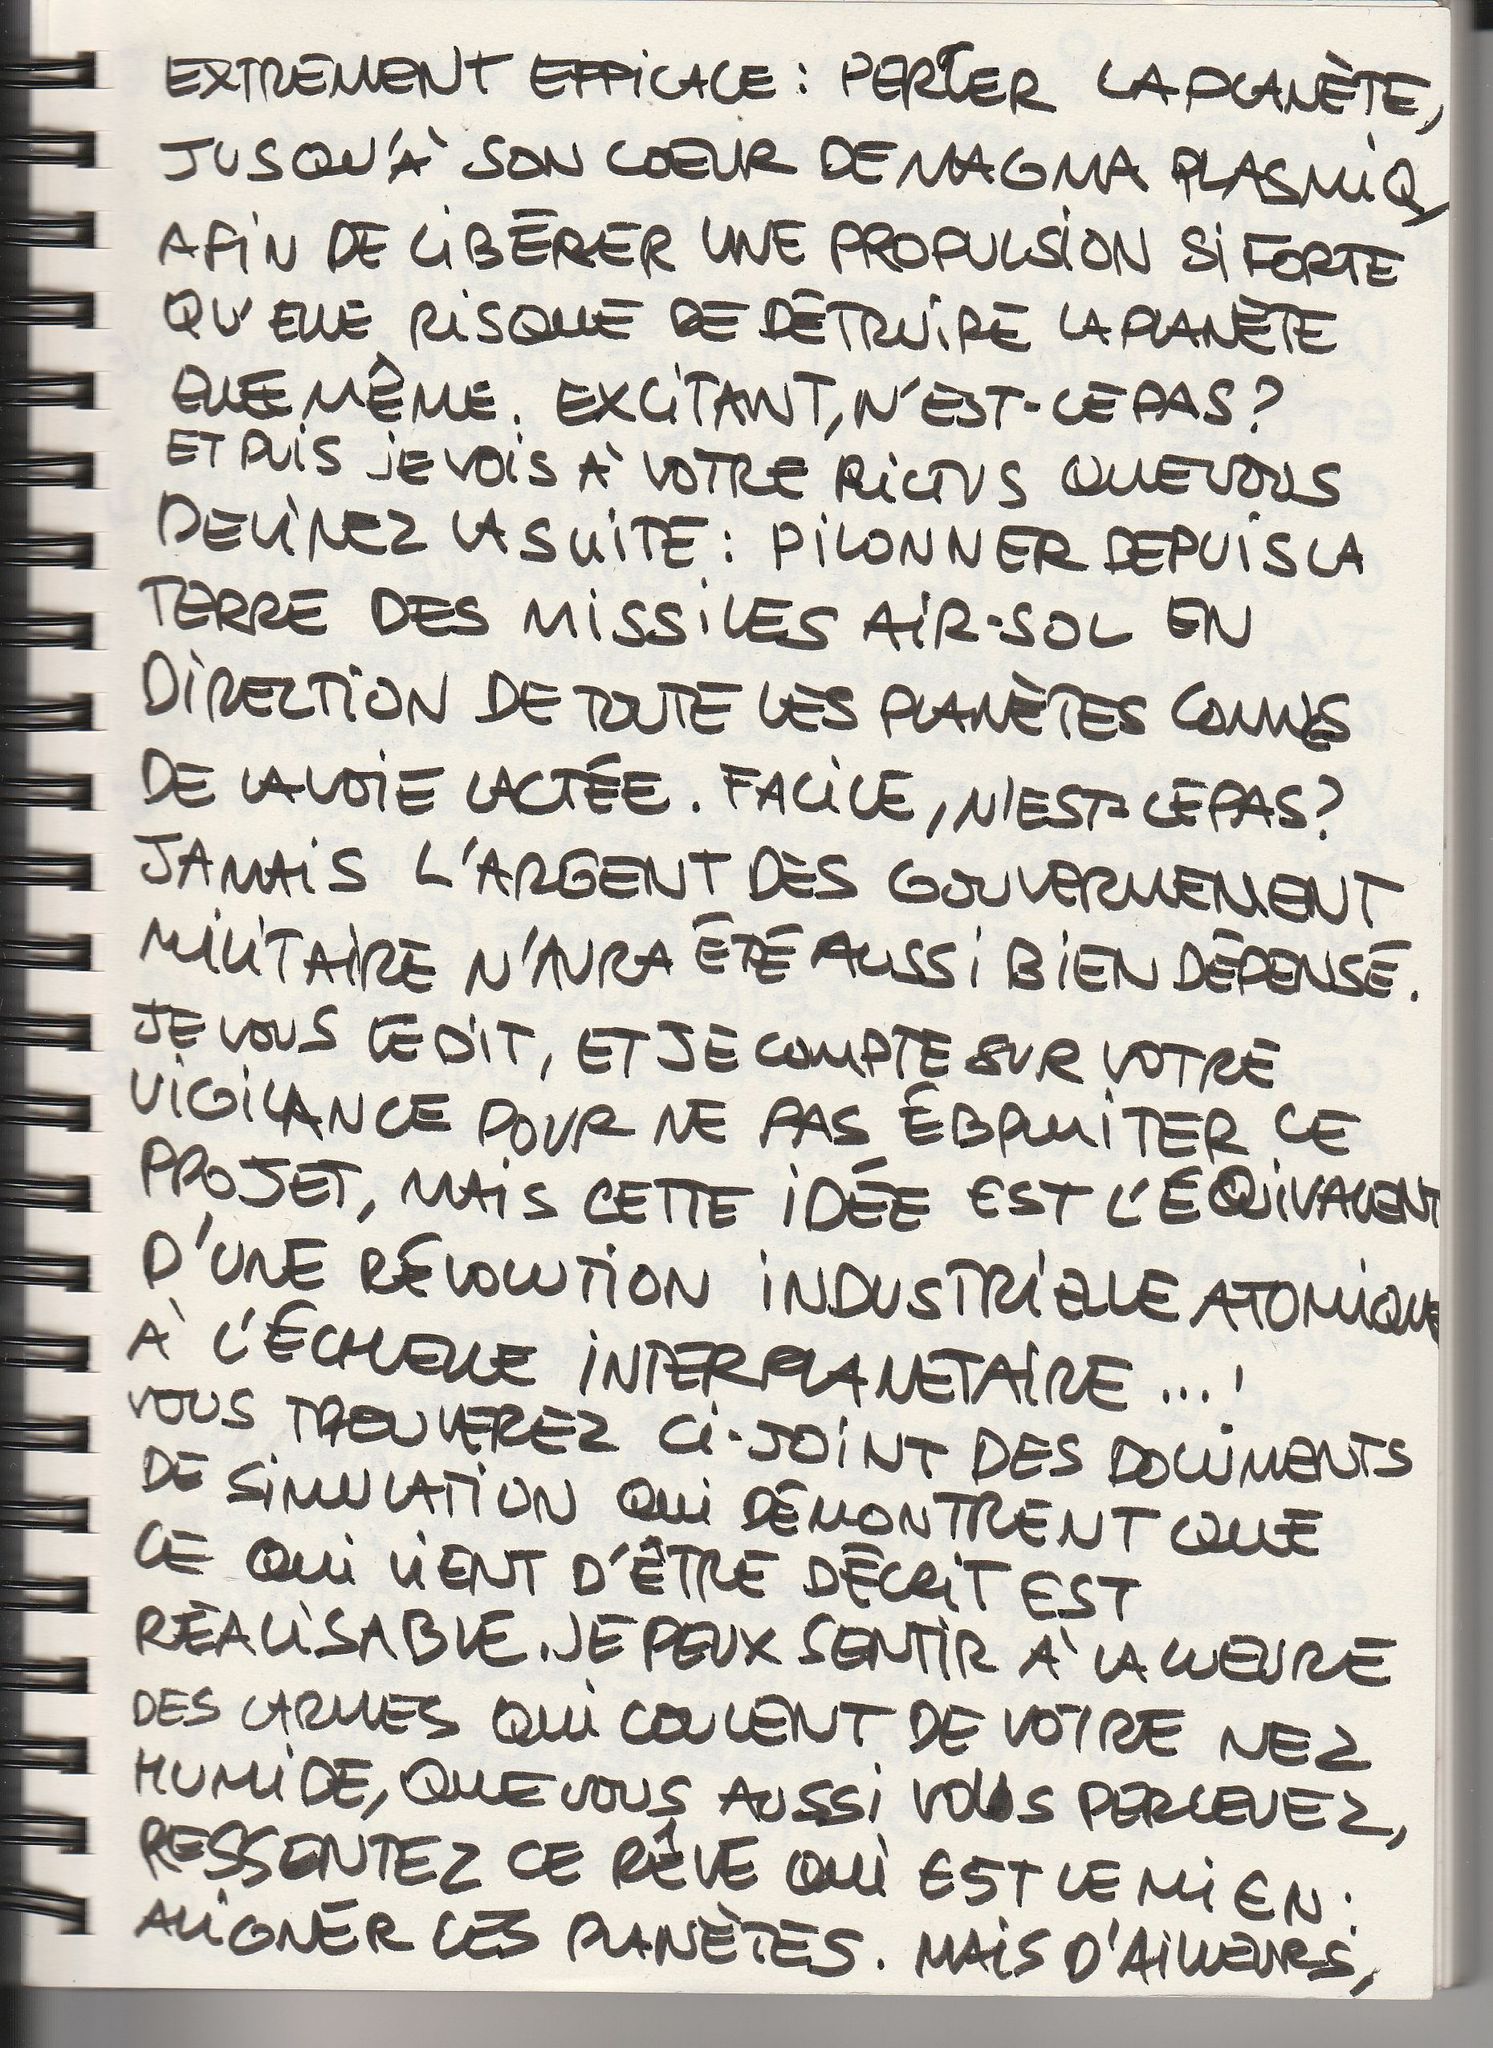 EXTREMENT EFFICACE : PERCER LA PLANÈTE,
JUSQU'À SON COEUR DE MAGMA PLASMIQ,
AFIN DE LIBÉRER UNE PROPULSION SI FORTE
QU'ELLE RISQUE DE DÉTRUIRE LA PLANÈTE
ELLE MÊME. EXCITANT, N'EST-CE PAS ?
ET PUIS JE VOIS À VOTRE RICTUS QUE VOUS
DEVINEZ LA SUITE : PILONNER DEPUIS LA
TERRE DES MISSILES AIR-SOL EN
DIRECTION DE TOUTE LES PLANÈTES CONNUES
DE LA VOIE LACTÉE. FACILE, N'EST-CE PAS ?
JAMAIS L'ARGENT DES GOUVERNEMENT
MILITAIRE N'AURA ÉTÉ AUSSI BIEN DÉPENSÉ.
JE VOUS LE DIT, ET JE COMPTE SUR VOTRE
VIGILANCE POUR NE PAS ÉBRUITER CE
PROJET, MAIS CETTE IDÉE EST L'ÉQUIVALENT
D'UNE RÉVOLUTION INDUSTRIELLE ATOMIQUE
À L'ÉCHELLE INTERPLANETAIRE ... !
VOUS TROUVEREZ CI-JOINT DES DOCUMENTS
DE SIMULATION QUI DÉMONTRENT QUE
CE QUI VIENT D'ÊTRE DÉCRIT EST
RÉALISABLE. JE PEUX SENTIR À LA LUEURE
DES LARMES QUI COULENT DE VOTRE NEZ
HUMIDE, QUE VOUS AUSSI VOUS PERCEVEZ,
RESSENTEZ CE RÊVE QUI EST LE MIEN :
ALIGNER LES PLANÈTES. MAIS D'AILLEURS,